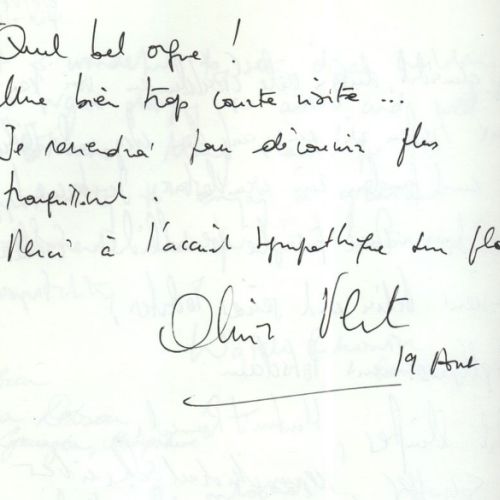 Quel bel orgue !
Une bien trop courte visite ...
Je reviendrai pour découvrir plus
tranquillement.
Merci à l'accueil sympathique sur pla
Olivier
19 Août